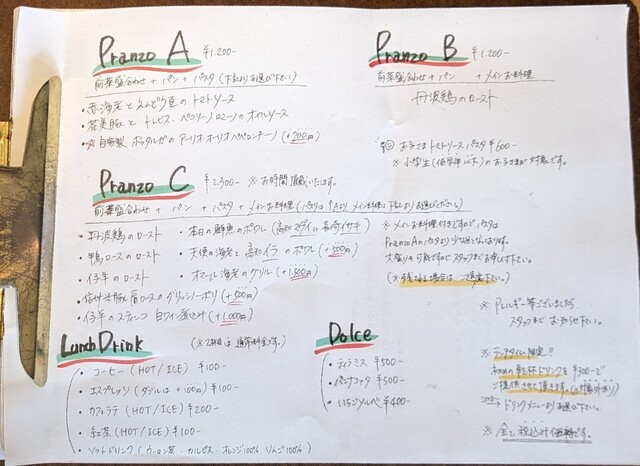 Pranzo A ¥1.200-
前菜盛合わせ + パン + パスタ (下記よりお選び下さい)
・赤海老とえんどう豆のトマトソース
・茶美豚とトレビス、ペコリーノロマーノのオイルソース
・☆自家製 ボッタルガのアーリオ・オーリオ・ペペロンチーノ (+200円)
Pranzo B ¥1.200-
前菜盛合わせ + パン + メインお料理
丹波鶏のロースト
お子さまトマトソースパスタ ¥600-
※小学生(低学年以下)のお子さまが対象です。
Pranzo C ¥2.300- ※お時間頂戴いたします。
前菜盛合わせ + パン + パスタ + メインお料理 (パスタは↑Aより メイン料理は下記よりお選びください)
・丹波鶏のロースト
・鴨ロースのロースト
・仔羊のロースト
・信州米豚 肩ロースのグリル (+500円)
・仔羊のスティンコ 白ワイン煮込み (+1.000円)
・本日の鮮魚のポワレ (高知マダイ 長崎イサキ)
・天使の海老と高知イラのポワレ (+500円)
・オマール海老のグリル (+1.500円)
※メインお料理付きですのでパスタは
Pranzo Aのパスタより少なめとなっております。
大盛りも可能ですのでスタッフまでお申し付け下さい。
(※残される場合はご遠慮下さい。)
※アレルギー等ございましたら
スタッフまでお知らせ下さい。
Lunch Drink (※2杯目は通常料金です。)
・コーヒー (HOT/ICE) ¥100-
・エスプレッソ (ダブルは+100円) ¥100-
・カフェラテ (HOT/ICE) ¥200-
・紅茶 (HOT/ICE) ¥100-
・ソフトドリンク (ウーロン茶・カルピス・オレンジ100%・りんご100%)
Dolce
・ティラミス ¥500-
・パンナコッタ ¥500-
・いちごソルベ ¥400-
※ランチタイム限定!!
初めの乾杯ドリンクを¥300-で
ご提供させて頂きます。
ドリンクメニューよりお選び下さい。
※全て税込み価格です。